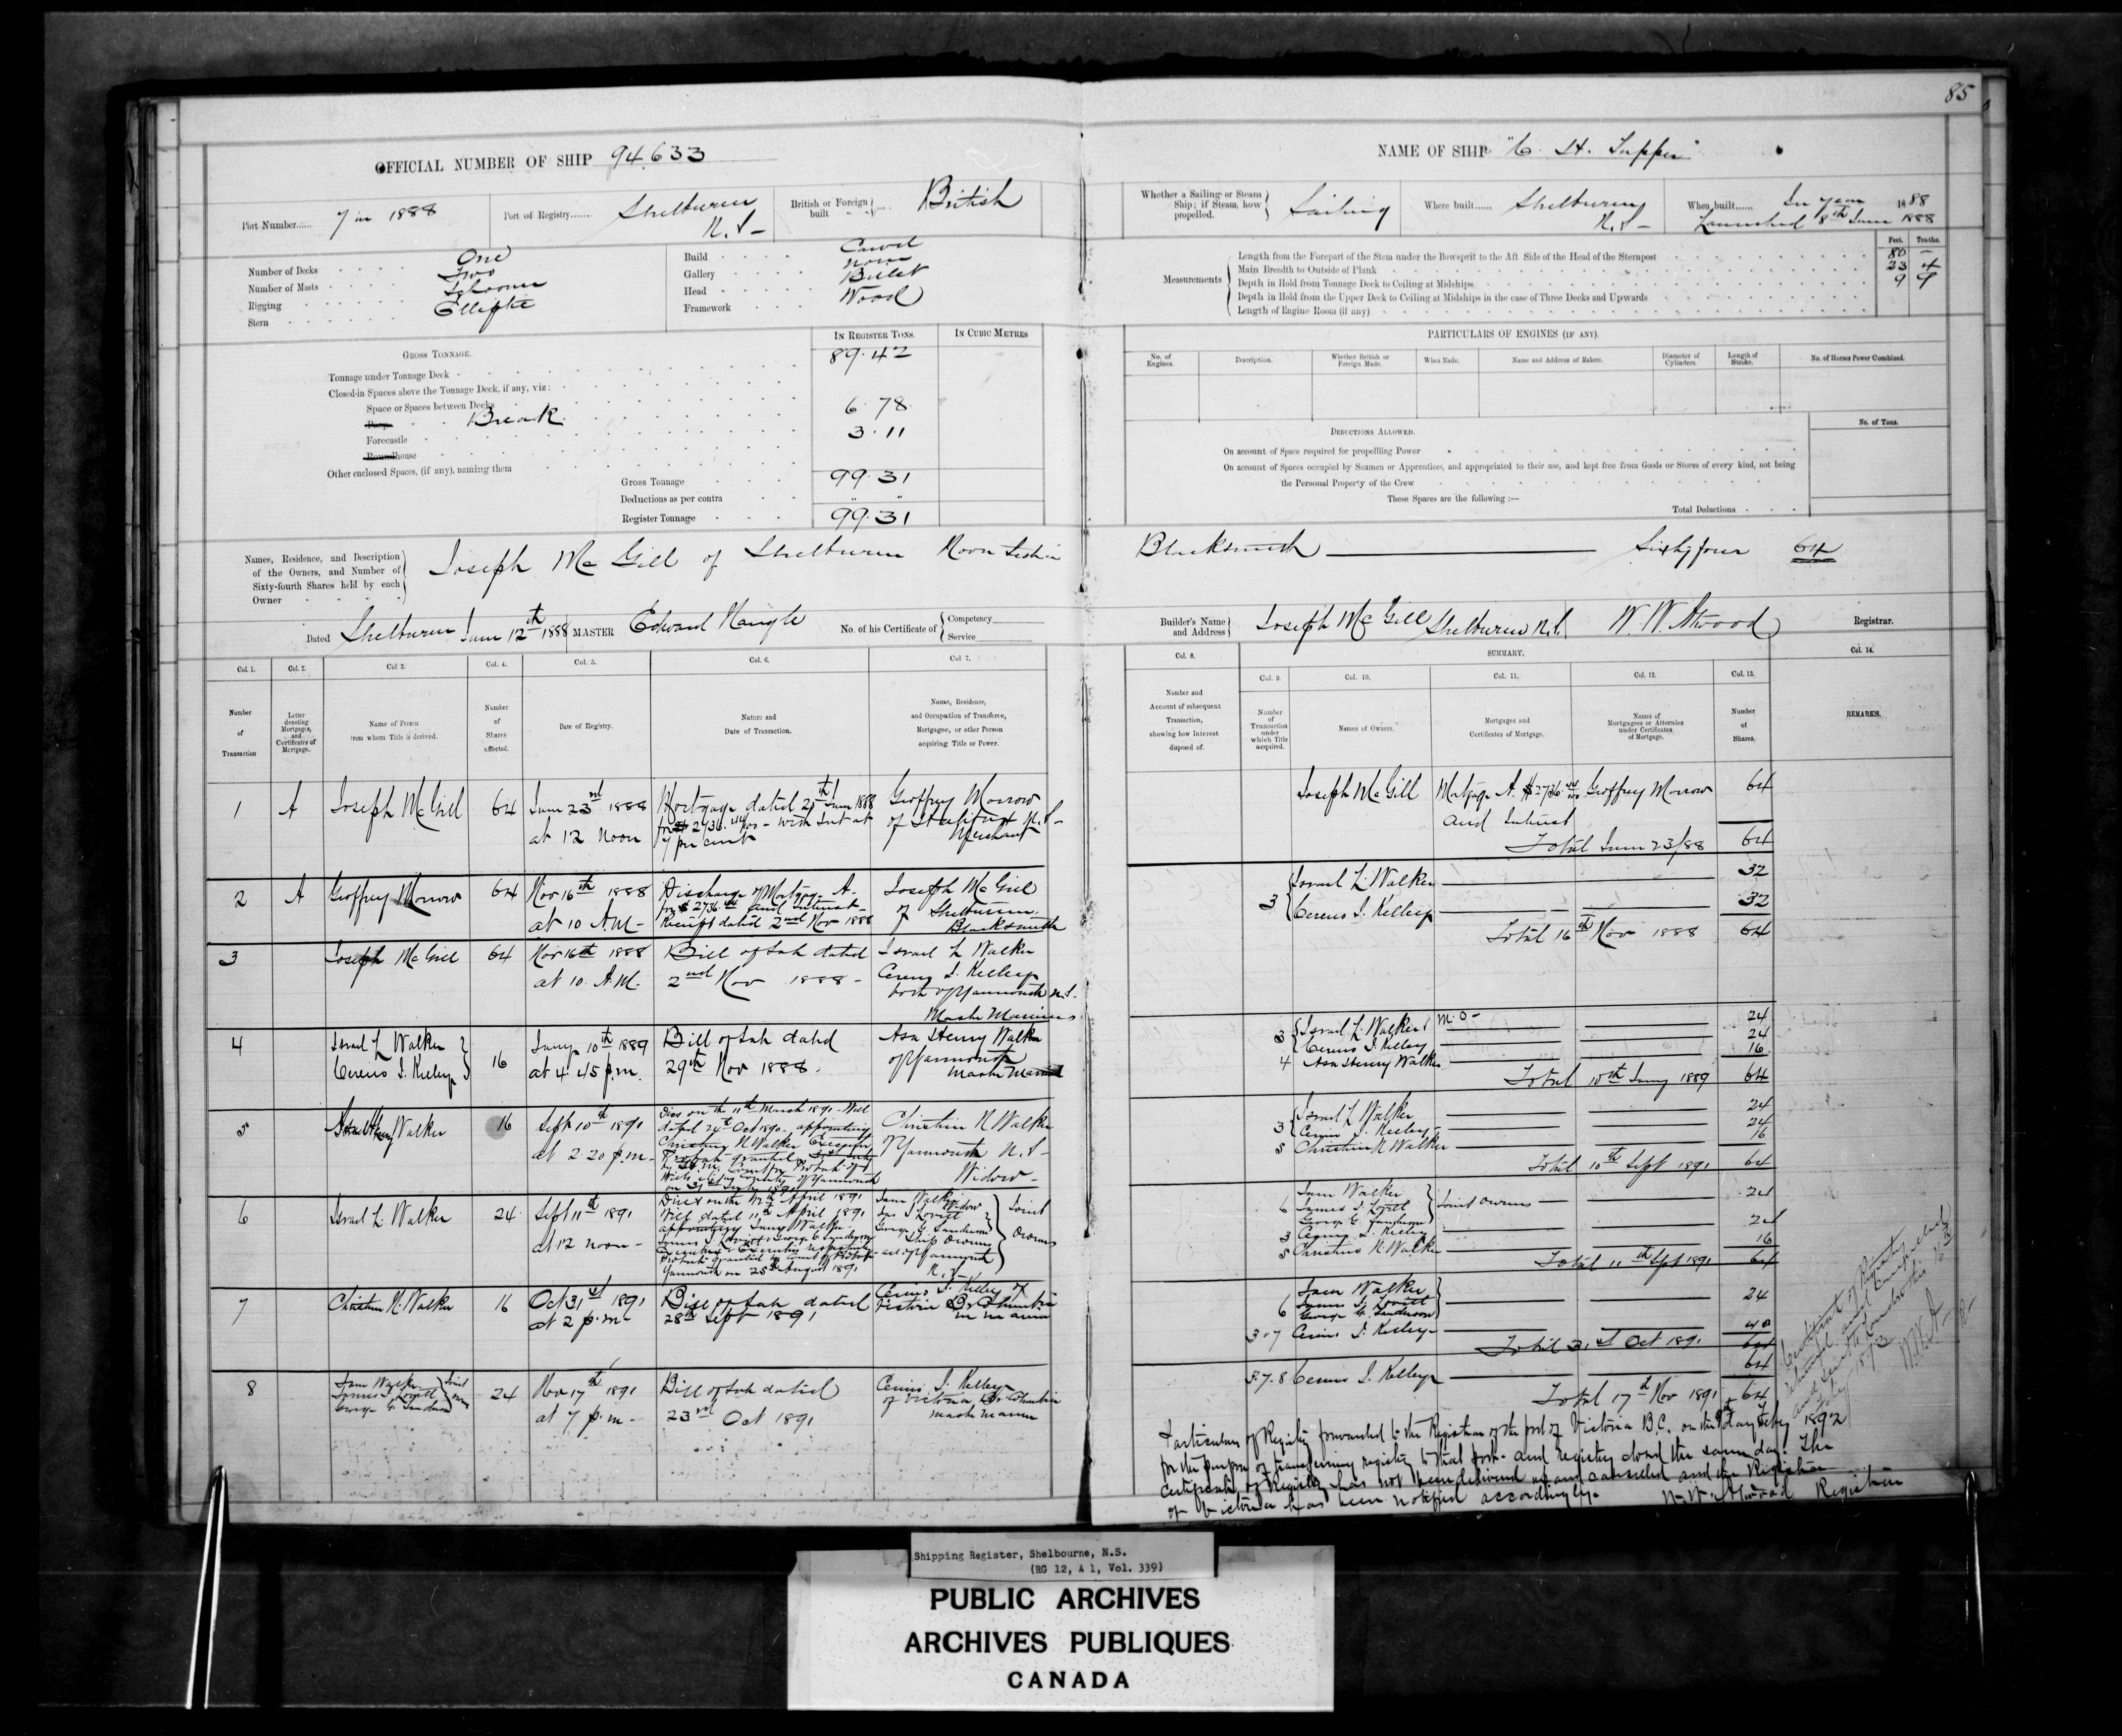 85
OFFICIAL NUMBER OF SHIP 94,633
NAME OF SHIP "C. H. Tupper"
Port Number...... 7 in 1888
Port of Registry...... Shelburne N.S.
British or Foreign built .... British
Whether a Sailing or Steam Ship; if Steam, how propelled. Sailing
Where built...... Shelburne N.S.
When built...... In year 1888
Launched 8th June 1888
Number of Decks One
Number of Masts Two
Rigging Schooner
Stern Elliptic
Build Carvel
Gallery None
Head Billet
Framework Wood
Measurements
Feet. Tenths.
Length from the Forepart of the Stem under the Bowsprit to the Aft Side of the Head of the Sternpost 80 —
Main Breadth to Outside of Plank 23 4
Depth in Hold from Tonnage Deck to Ceiling at Midships 9 9
Depth in Hold from the Upper Deck to Ceiling at Midships in the case of Three Decks and Upwards
Length of Engine Room (if any)
GROSS TONNAGE.
IN REGISTER TONS.
IN CUBIC METRES
Tonnage under Tonnage Deck 89.42
Closed-in Spaces above the Tonnage Deck, if any, viz:
Space or Spaces between Decks
Poop Break 6.78
Forecastle 3.11
Roundhouse
Other enclosed Spaces, (if any), naming them
Gross Tonnage 99.31
Deductions as per contra " "
Register Tonnage 99.31
PARTICULARS OF ENGINES (IF ANY).
No. of Engines.
Description.
Whether British or Foreign Made.
When Made.
Name and Address of Makers.
Diameter of Cylinders.
Length of Stroke.
No. of Horses Power Combined.
DEDUCTIONS ALLOWED.
No. of Tons.
On account of Space required for propelling Power
On account of Spaces occupied by Seamen or Apprentices, and appropriated to their use, and kept free from Goods or Stores of every kind, not being
the Personal Property of the Crew
These Spaces are the following :—
Total Deductions
Names, Residence, and Description of the Owners, and Number of Sixty-fourth Shares held by each Owner
Joseph McGill of Shelburne Nova Scotia Blacksmith — Sixty four 64
Dated Shelburne June 12th 1888 MASTER Edward
No. of his Certificate of Competency Service
Builder's Name and Address Joseph McGill Shelburne N.S. W. W. Atwood Registrar.
Col. 1. Number of Transaction
Col. 2. Letter denoting Mortgages, and Certificates of Mortgage.
Col. 3. Name of Person from whom Title is derived.
Col. 4. Number of Shares affected.
Col. 5. Date of Registry.
Col. 6. Nature and Date of Transaction.
Col. 7. Name, Residence, and Occupation of Transferee, Mortgagee, or other Person acquiring Title or Power.
Col. 8. Number and Account of subsequent Transaction, showing how Interest disposed of.
SUMMARY.
Col. 9. Number of Transaction under which Title acquired.
Col. 10. Names of Owners.
Col. 11. Mortgages and Certificates of Mortgage.
Col. 12. Names of Mortgagees or Attornies under Certificates of Mortgage.
Col. 13. Number of Shares.
Col. 14. REMARKS.
1 A Joseph McGill 64 June 23rd 1888 at 12 Noon
Mortgage dated June 1888 for $2736. with Int at 7 per cent
Geoffrey Morrow of N.S. Merchant
Joseph McGill Mortgage A. $2736 and Interest Geoffrey Morrow 64
Total June 23/88 64
2 A Geoffrey Morrow 64 Nov 16th 1888 at 10 A.M.
Discharge of Mortgage A. for $2736 and Interest Receipt dated 2nd Nov 1888
Joseph McGill of Shelburne Blacksmith
3 Israel L. Walker 32
Cereno J. Kelley 32
Total 16th Nov 1888 64
3 Joseph McGill 64 Nov 16th 1888 at 10 A.M.
Bill of Sale dated 2nd Nov 1888
Israel L Walker Cereno J. Kelley both of Yarmouth N.S. Master Mariners
4 Israel L Walker Cereno J. Kelley 16 Jany 10th 1889 at 4.45 p.m.
Bill of Sale dated 29th Nov 1888
Asa Henry Walker of Yarmouth Master Mariner
3 Israel L. Walker M.O. 24
Cereno J. Kelley 24
4 Asa Henry Walker 16
Total 10th Jany 1889 64
5 Asa Henry Walker 16 Sept 10th 1891 at 2 20 p.m.
Died on the 11th March 1891 Will dated 24th Oct 1890 appointing Christina N Walker Executrix Probate granted
Christina N Walker Yarmouth N.S. Widow
3 Israel L Walker 24
Cereno J. Kelley 24
5 Christina N Walker 16
Total 10th Sept 1891 64
6 Israel L. Walker 24 Sept 11th 1891 at 12 noon
Died on the April 1891 Will dated 11th April 1891 appointing Jane Walker James J. Lovitt & George G. Sanderson Probate granted Yarmouth on 25th August 1891
Jane Walker Widow Jas J. Lovitt George G. Sanderson Ship Owners all of Yarmouth N.S. Joint Owners
6 Jane Walker James J. Lovitt George G. Sanderson Joint owners 24
3 Cereno J. Kelley 24
5 Christina N Walker 16
Total 11th Sept 1891 64
7 Christina N. Walker 16 Oct 31st 1891 at 2 p.m.
Bill of Sale dated 28th Sept 1891
Cereno J. Kelley of Victoria B. Columbia
6 Jane Walker James J. Lovitt George G. Sanderson 24
3.7 Cereno J. Kelley 40
Total 31st Oct 1891 64
8 Jane Walker James J. Lovitt George G. Sanderson Joint 24 Nov 17th 1891 at 7 p.m.
Bill of Sale dated 23rd Oct 1891
Cereno J. Kelley of Victoria Br Columbia Master Mariner
3.7.8 Cereno J. Kelley 64
Total 17th Nov 1891 64
Particulars of Registry forwarded to the Registrar of the port of Victoria B.C. on the day Feby 1892
for the purpose of transferring registry to that port and registry closed the same day. The
Certificate of Registry has not been delivered up and cancelled and the Registrar
of Victoria has been notified accordingly. W. W. Atwood Registrar
Certificate of Registry
Shipping Register, Shelbourne, N.S.
(RG 12, A 1, Vol. 339)
PUBLIC ARCHIVES
ARCHIVES PUBLIQUES
CANADA